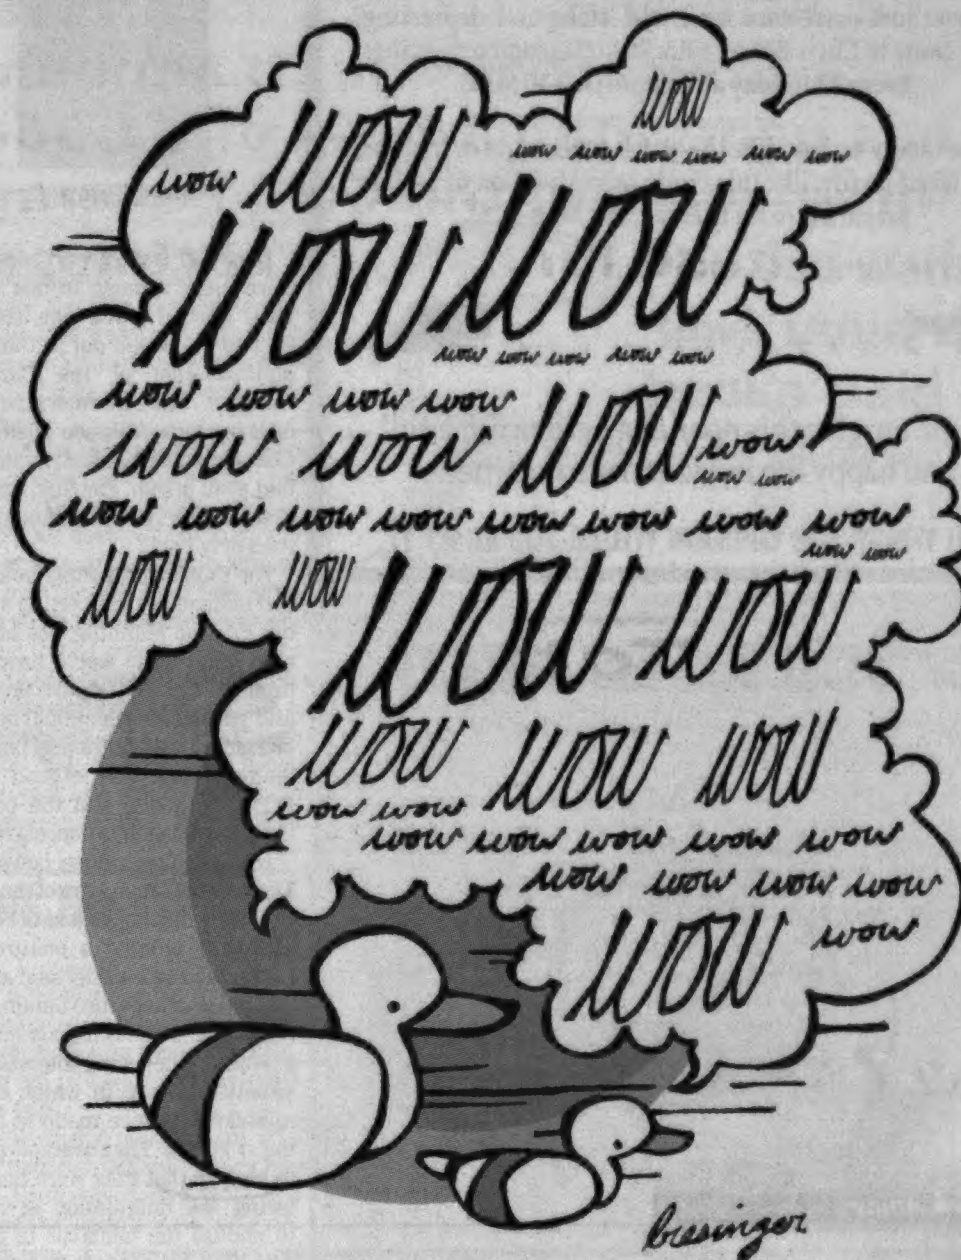 wow
wow wow wow wow wow wow wow wow
wow wow
wow wow wow wow wow
wow wow wow wow
wow wow wow wow
wow wow
wow wow wow wow wow wow wow wow
wow wow
wow wow wow wow
wow wow wow
wow wow
wow wow wow wow wow
wow wow wow wow
wow wow